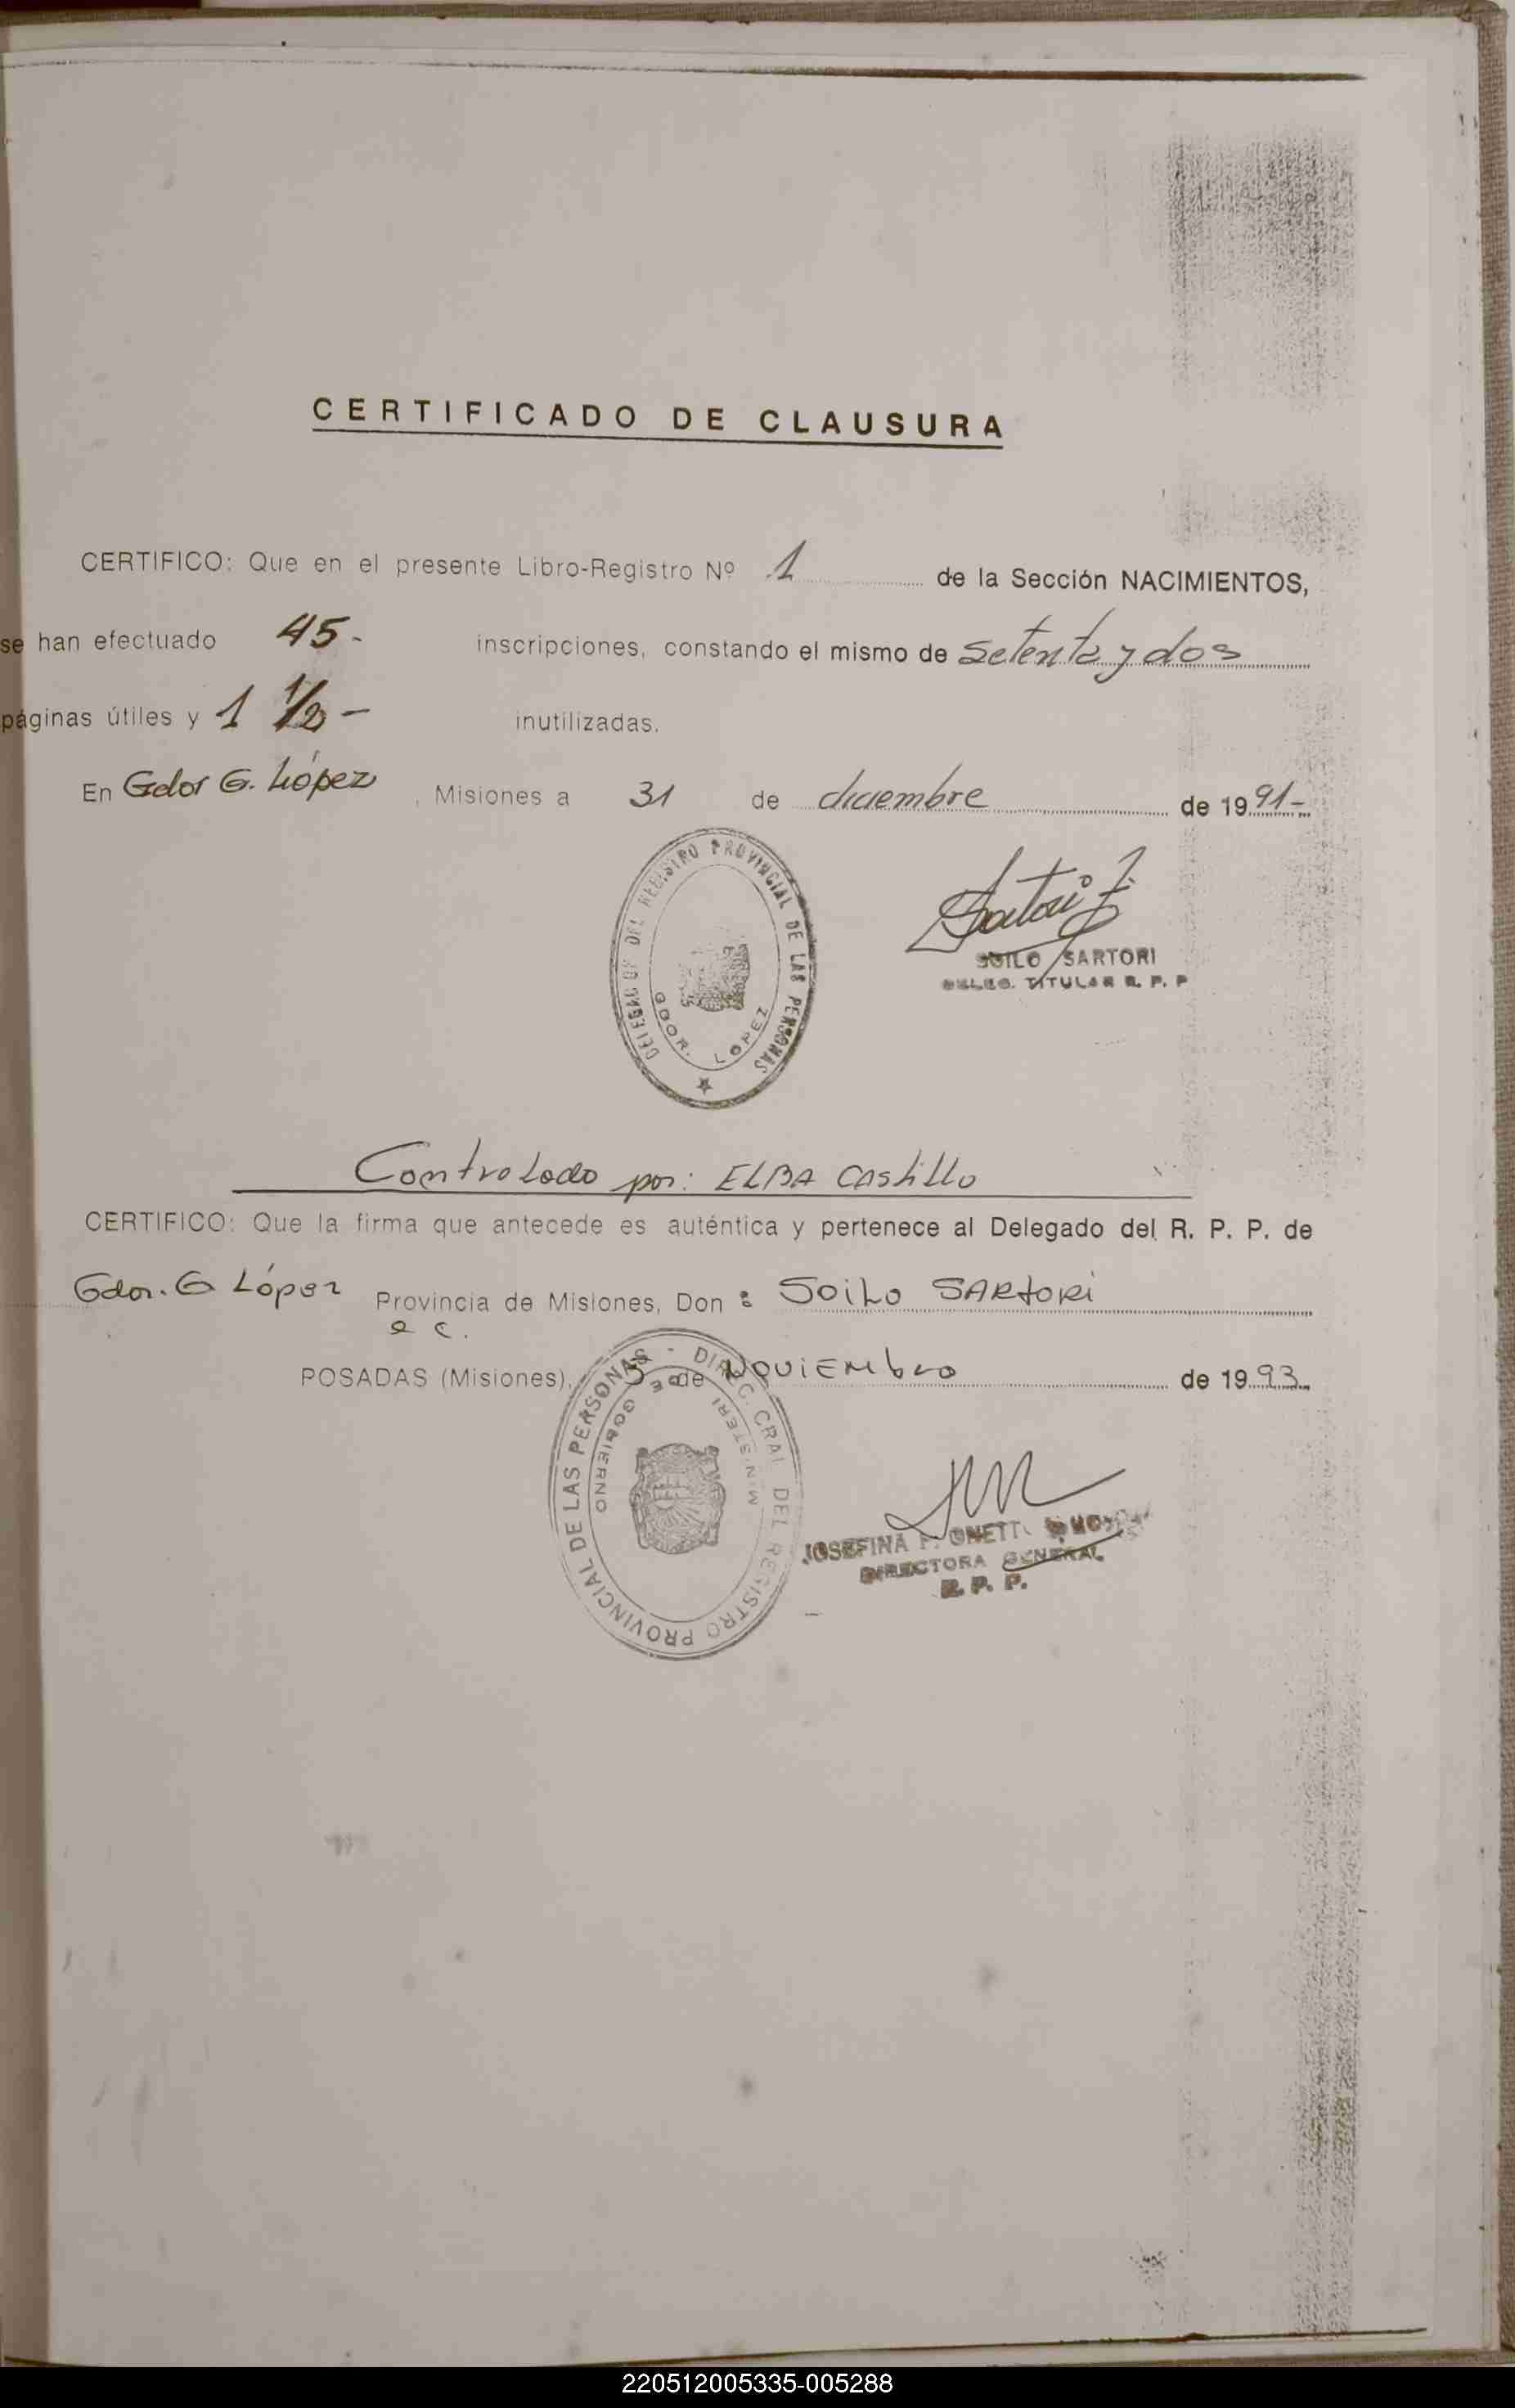 CERTIFICADO DE CLAUSURA
CERTIFICO: Que en el presente Libro-Registro Nº 1 de la Sección NACIMIENTOS,
se han efectuado 45- inscripciones, constando el mismo de setenta y dos
páginas útiles y 1 1/2 - inutilizadas.
En Gdor G. López, Misiones a 31 de diciembre de 1991-
DELEGACION DEL REGISTRO PROVINCIAL DE LAS PERSONAS
GDOR. LOPEZ
Sartori
SOILO SARTORI
DELEG. TITULAR R. P. P
Controlado por: ELBA Castillo
CERTIFICO: Que la firma que antecede es auténtica y pertenece al Delegado del R. P. P. de
Gdor. G López Provincia de Misiones, Don : SOiLo SARtORi
e c.
POSADAS (Misiones), 5 de NOViEMbro de 1993
DIREC. GRAL. DEL REGISTRO PROVINCIAL DE LAS PERSONAS -
MINISTERI DE GOBIERNO
JOSEFINA
DIRECTORA GENERAL
R. P. P.
220512005335-005288